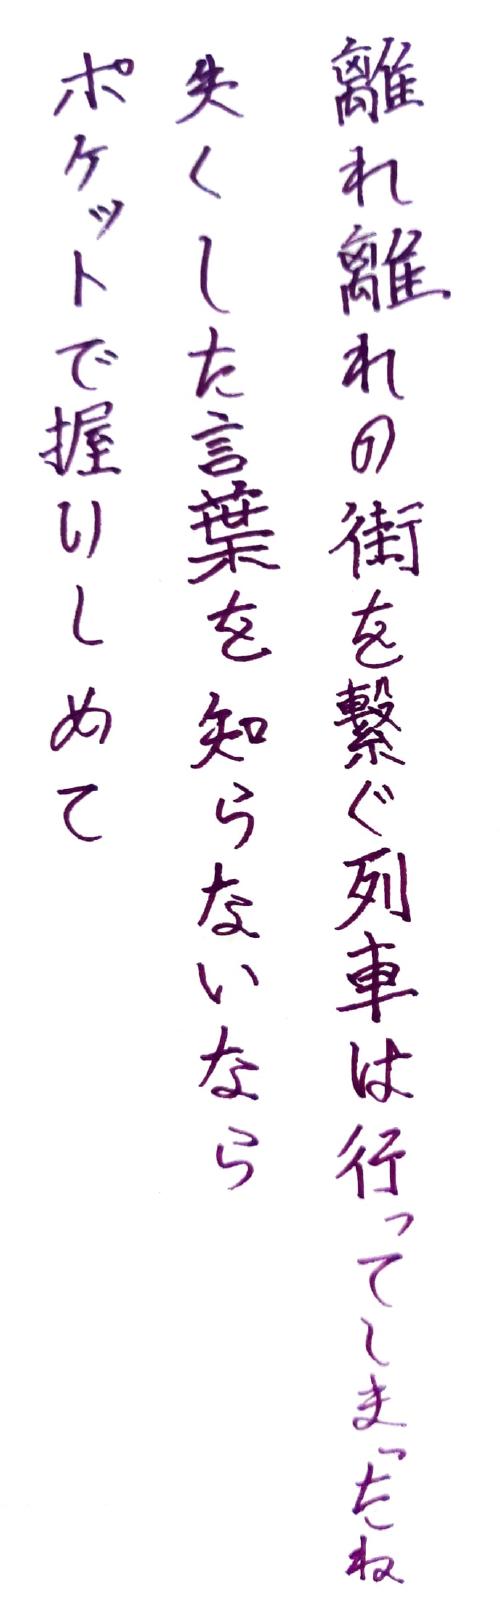 離れ離れの街を繋ぐ列車は行ってしまったね
失くした言葉を知らないなら
ポケットで握りしめて